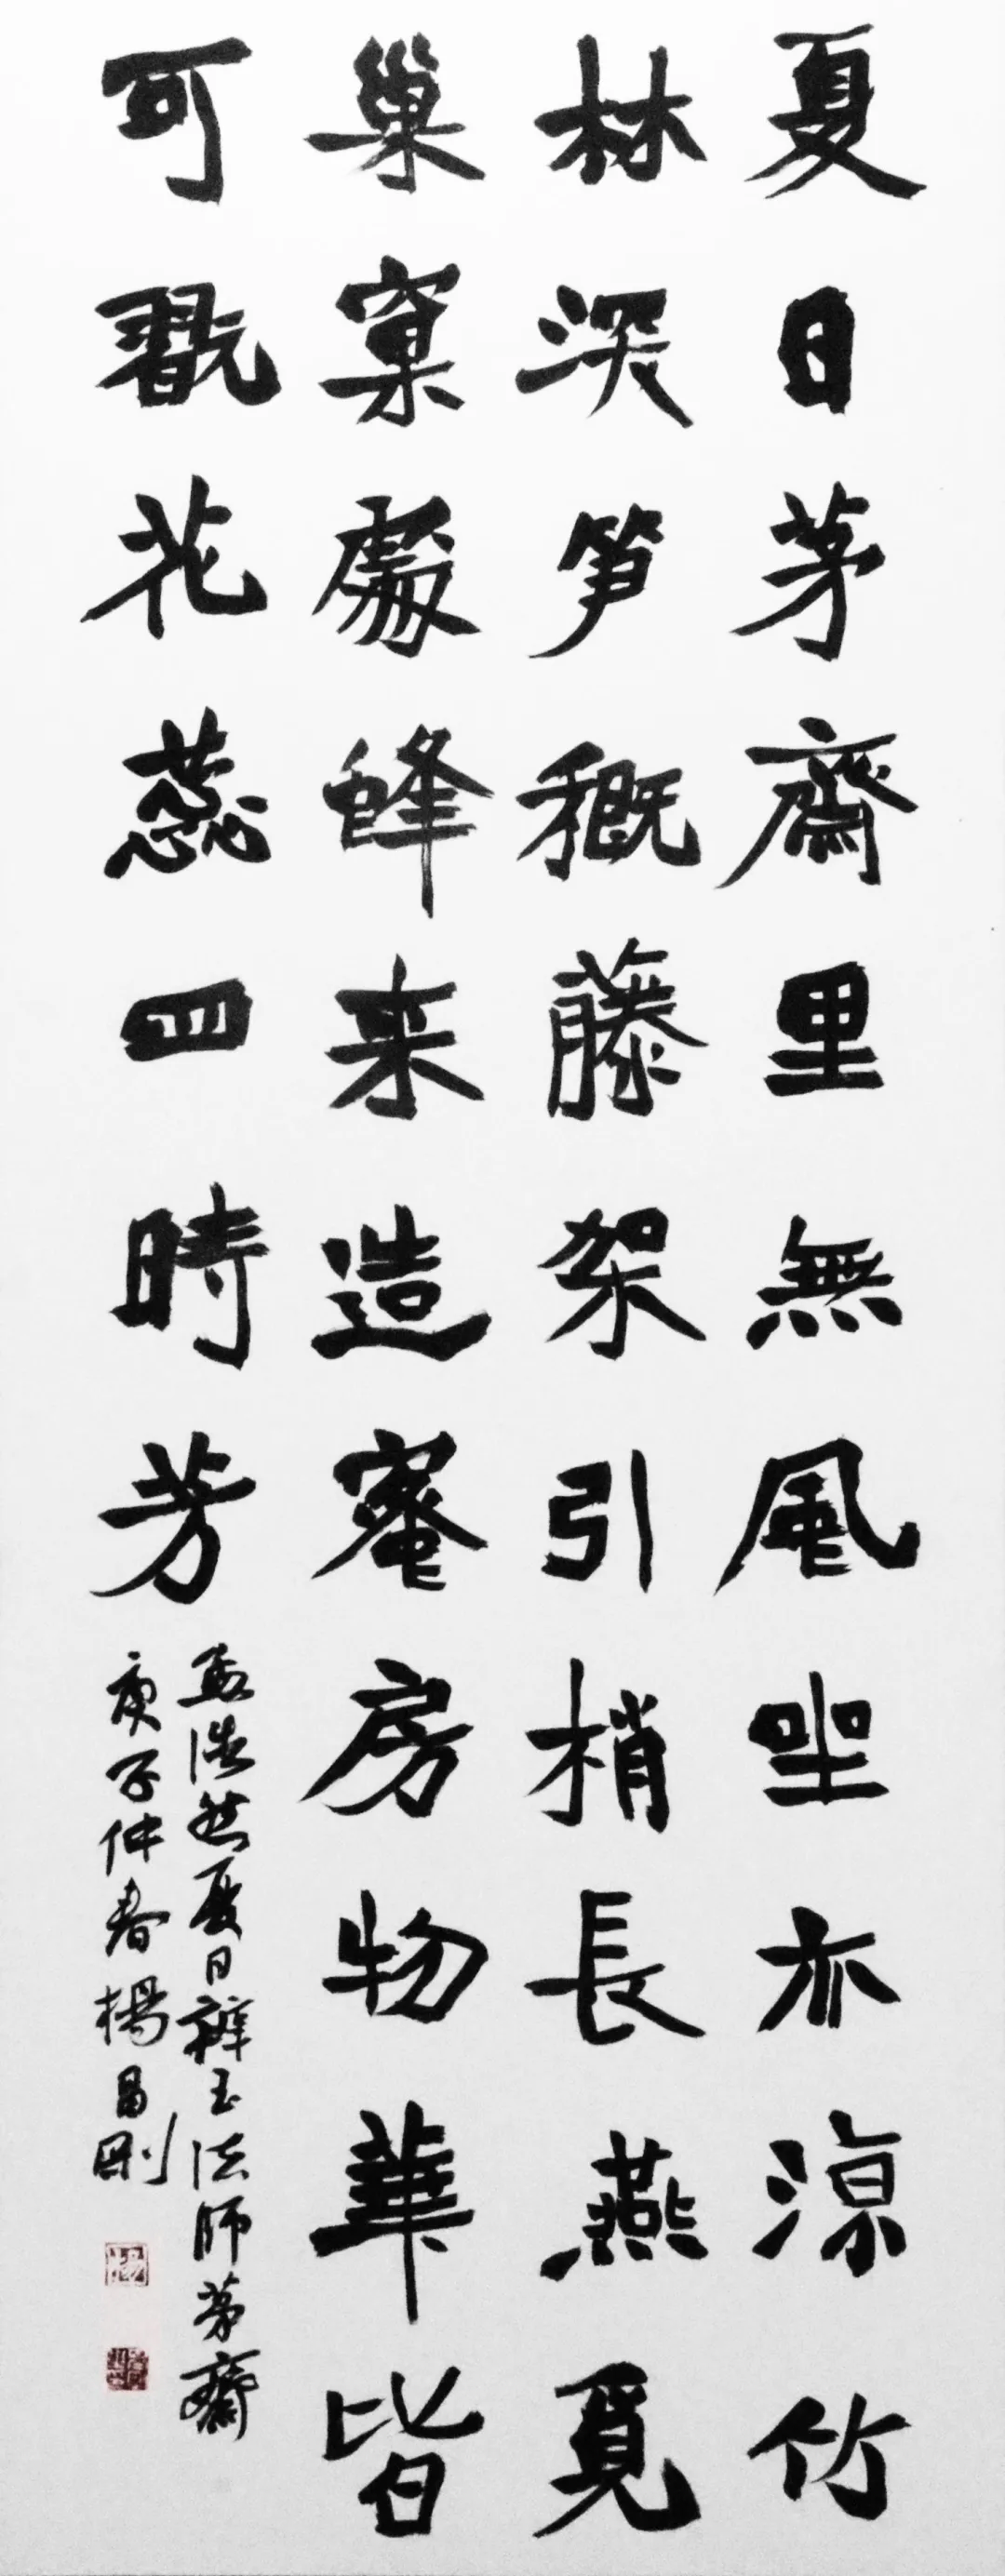 夏日茅齋里無風坐亦涼竹
林深笋穊藤架引梢長燕覓
巢窠處蜂来造蜜房物華皆
可翫花蕊四時芳
孟浩然夏日辯玉法師茅齋
庚子仲春楊昌剛